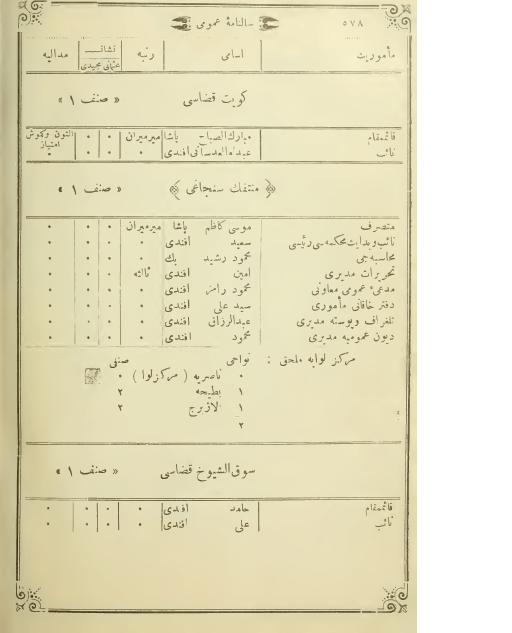 ٥٧٨ سالنامهٔ عمومى
مأموريت اسامى رتبه نشان عثمانى مجيدى مداليه
كويت قضاسى « صنف ١ »
قائممقام مبارك الصباح پاشا ميرميران • • التون وكموش امتياز
نائب عبدالله العدسانى افندى • • • •
﴿ منتفك سنجاغى ﴾ « صنف ١ »
متصرف موسى كاظم پاشا ميرميران • • •
نائب وبدايت محكمه سى رئيسى سعيد افندى • • • •
محاسبه جى محمود رشيد بك • • • •
تحريرات مديرى امين افندى ثالثه • • •
مدعىء عمومى معاونى محمود رامز افندى • • • •
دفتر خاقانى مأمورى سيد على افندى • • • •
تلغراف وپوسته مديرى عبدالرزاق افندى • • • •
ديون عموميه مديرى محمود افندى • • • •
مركز لوايه ملحق : نواحى صنفى
• ناصريه ( مركز لوا ) •
١ بطيحه ٢
١ ٢
٢
سوق الشيوخ قضاسى « صنف ١ »
قائممقام حامد افندى • • • •
نائب على افندى • • • •